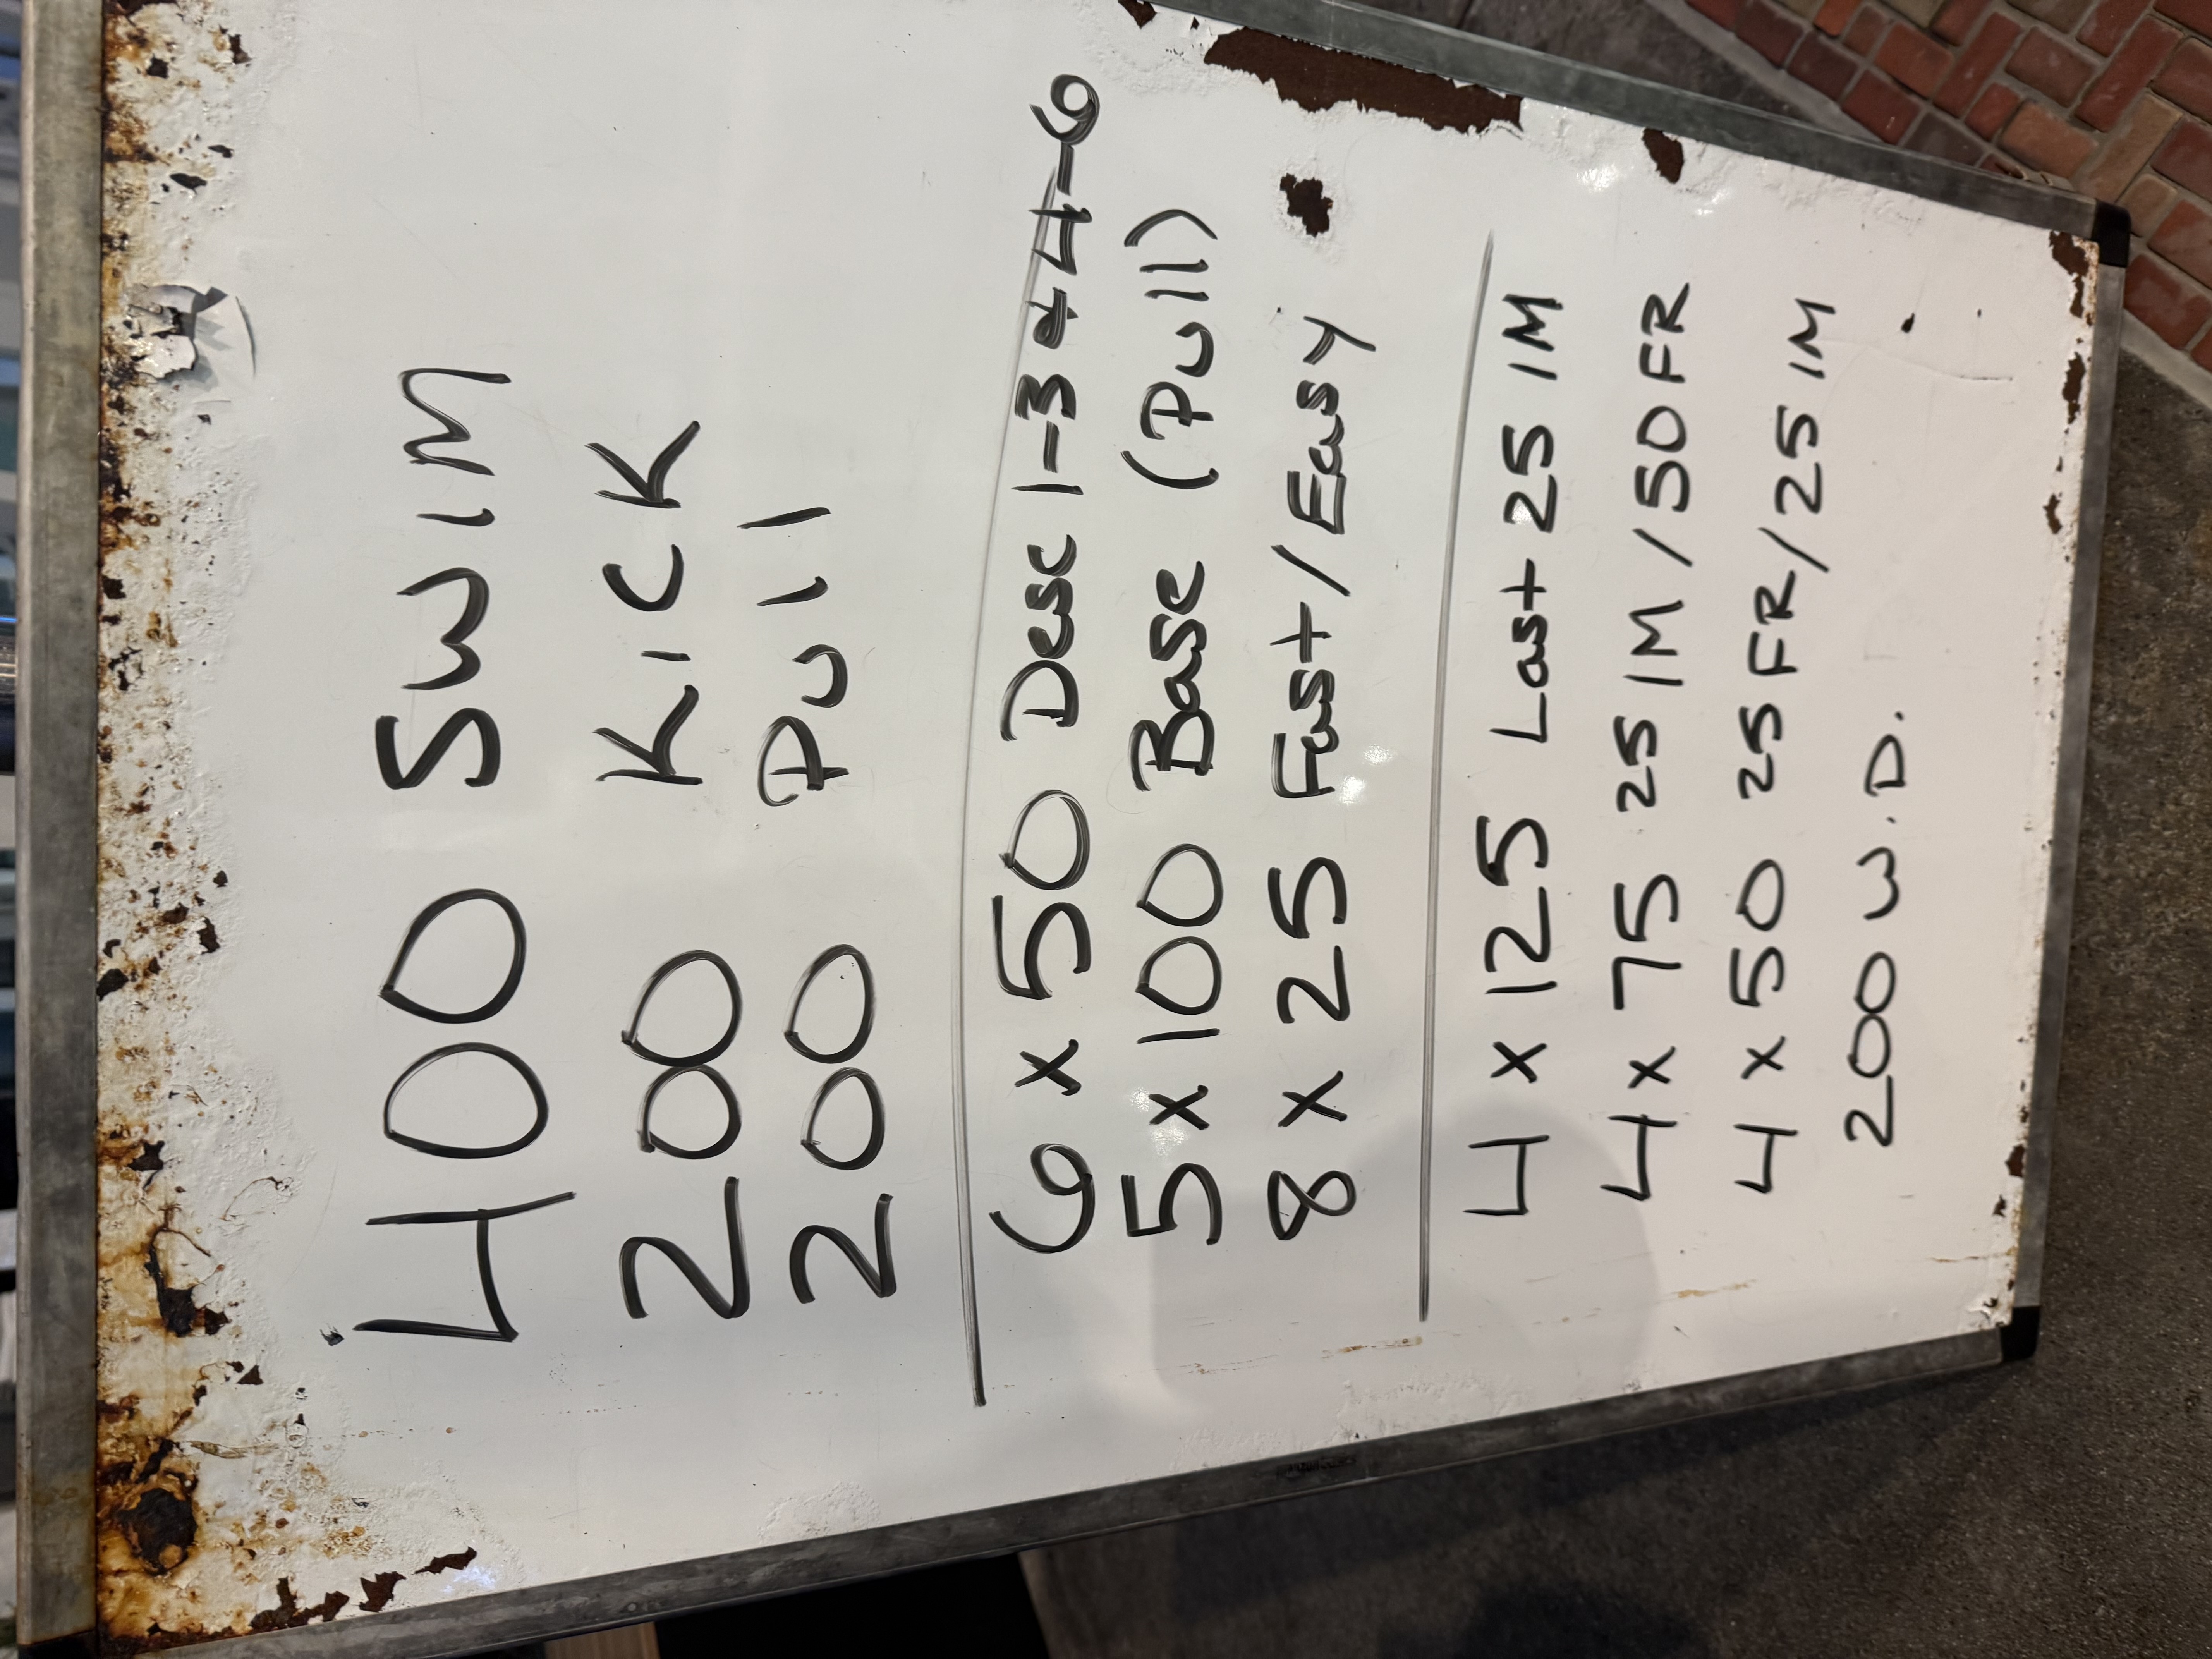 400 SWIM
200 KICK
200 Pull
6 x 50 Desc 1-3 & 4-6
5 x 100 Base (Pull)
8 x 25 Fast/Easy
4 x 125 Last 25 IM
4 x 75 25 IM/50 FR
4 x 50 25 FR/25 IM
200 W.D.